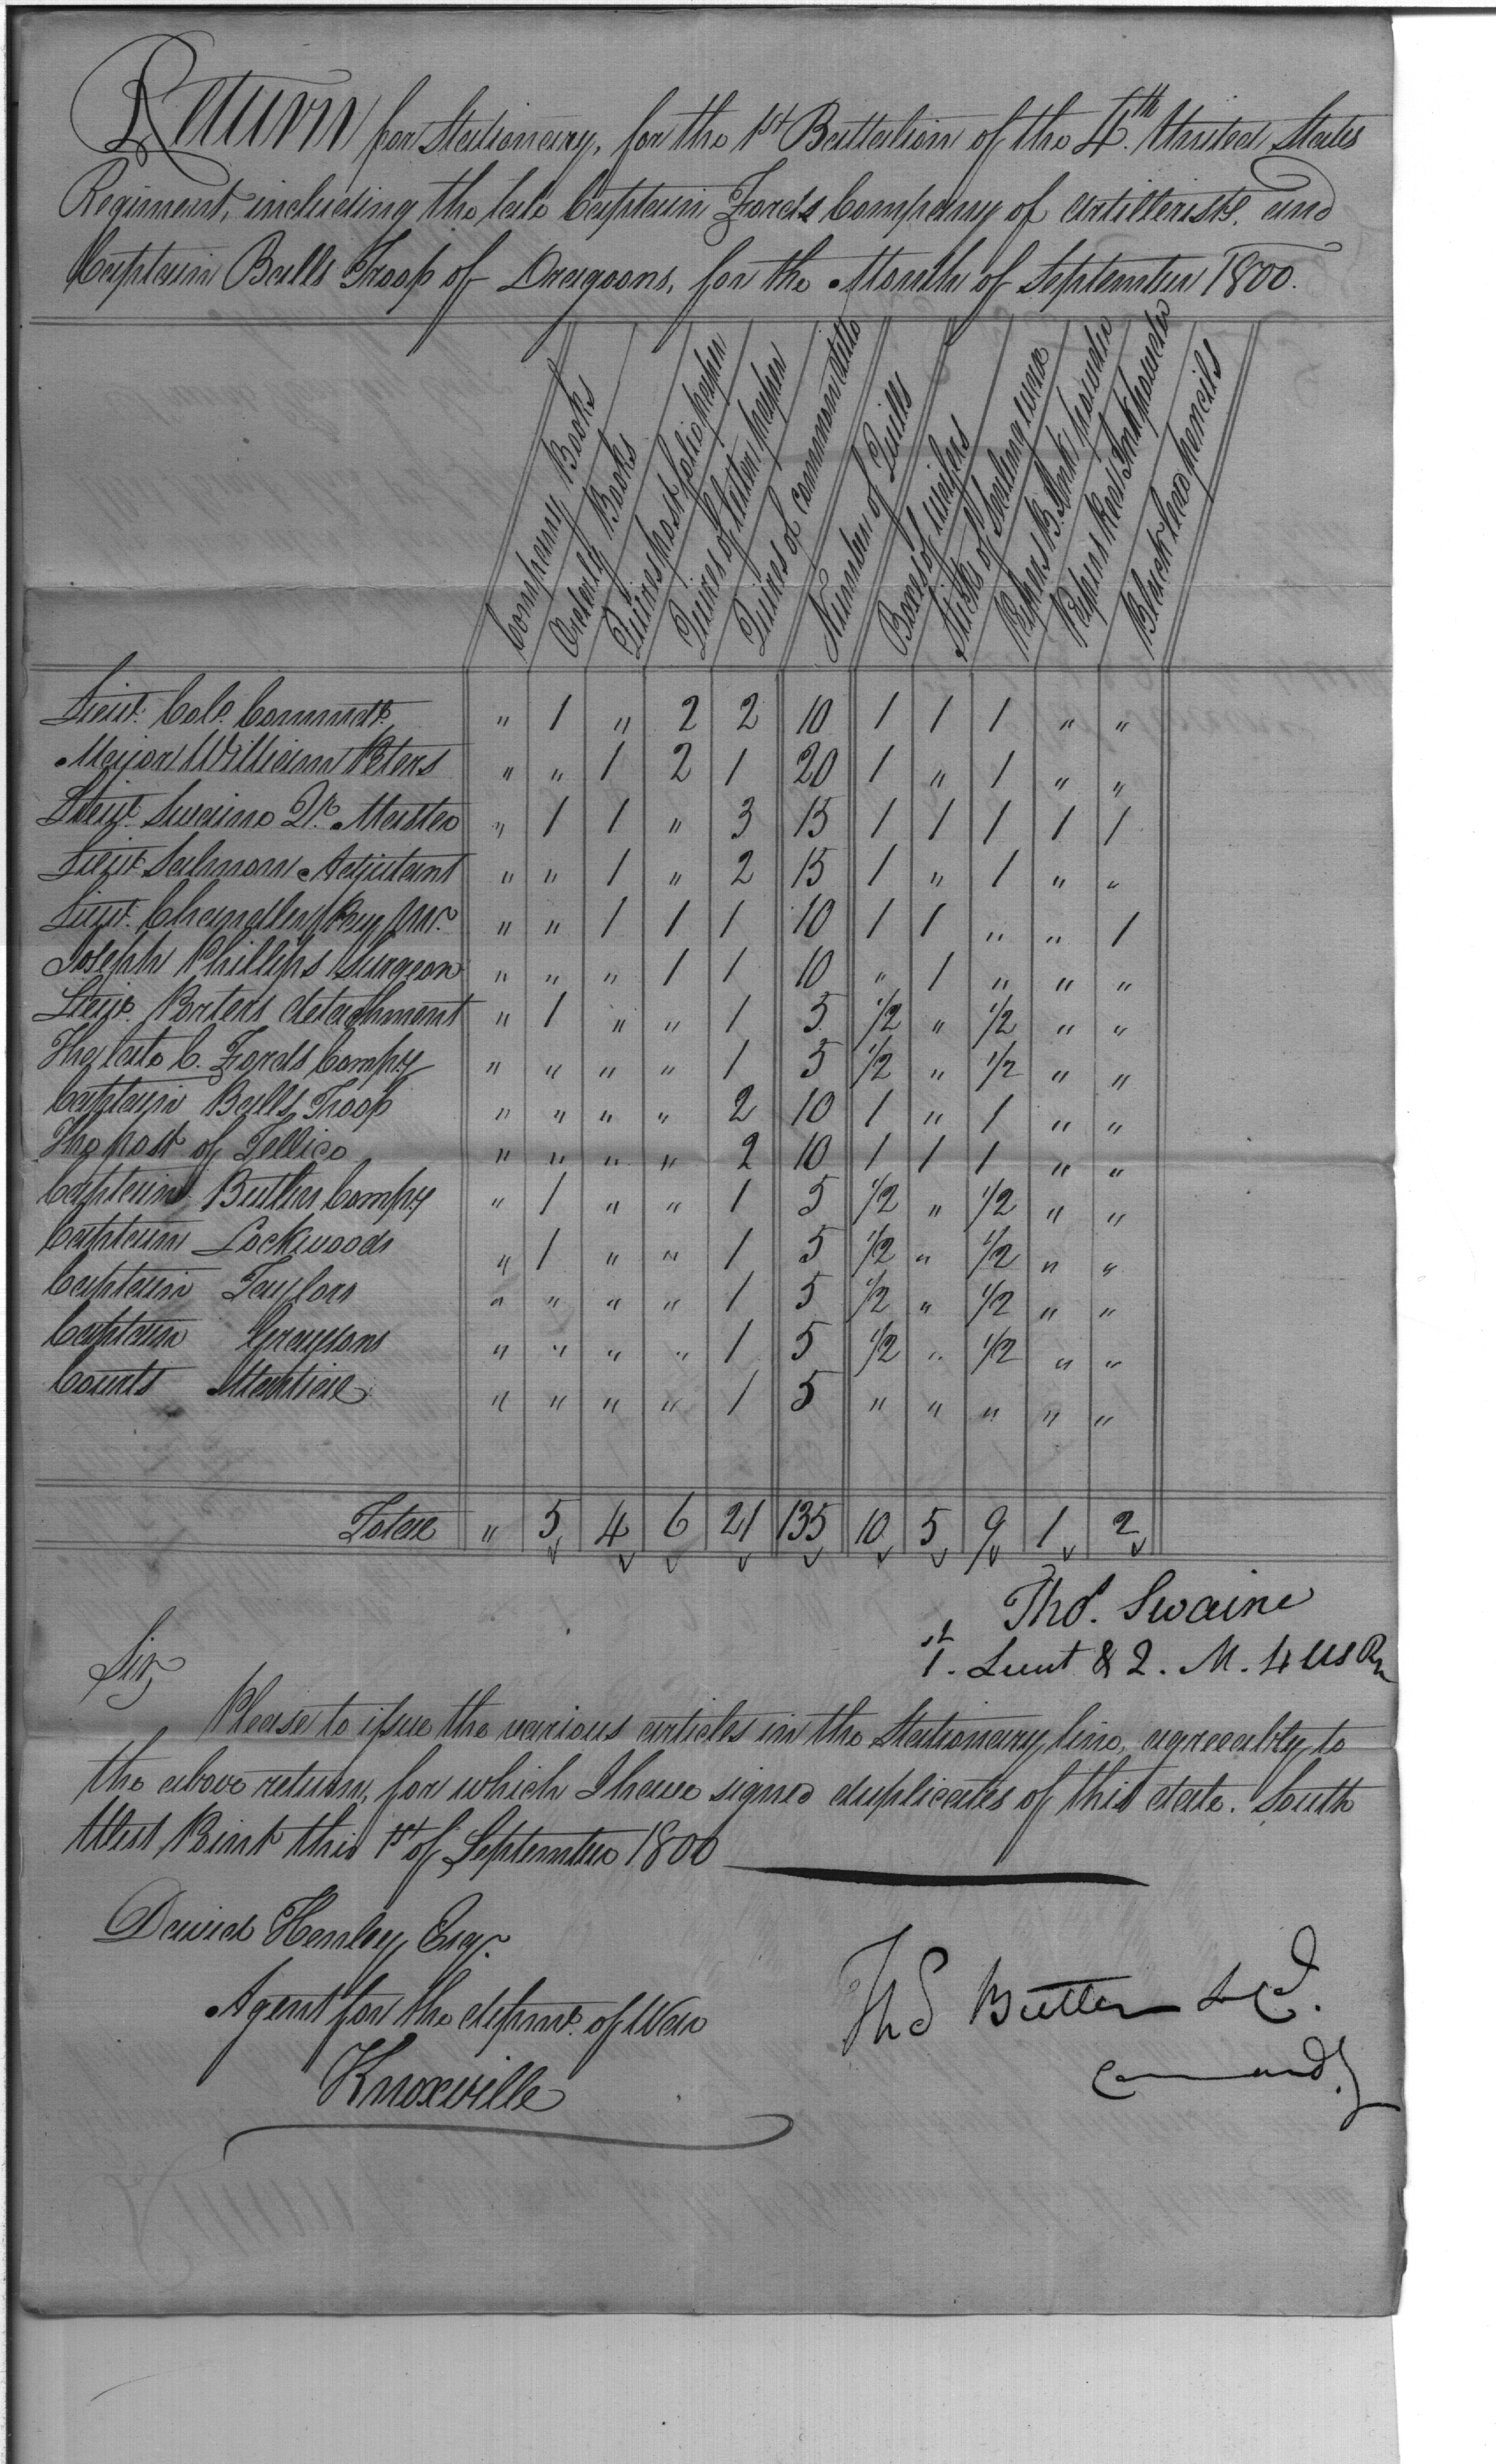 Return for Stationary, for the 1st Battalion of the 4th United States
Regiment, including the late Captain Fords Company of Artillerists, and
Captain Balls Troop of Dragoons, for the Month of September 1800.
Company Books
Orderly Books
Quires post folio paper
Quires of letter paper
Quires of common ditto
Number of Quills
Boxes of wafers
Sticks of Sealing wax
Papers B. Ink powder
Papers Red Ink powder
Black lead pencils
Lieut. Colo. Commdt. " 1 " 2 2 10 1 1 1 " "
Major William Peters " " 1 2 1 20 1 " 1 " "
Lieut. Swaine Qr. Master " 1 1 " 3 15 1 1 1 1 1
Lieut. Salmon Adjutant " " 1 " 2 15 1 " 1 " "
Lieut. Chandler Pay Mr. " " 1 1 1 10 1 1 " " 1
Joseph Phillips Surgeon " " " 1 1 10 " 1 " " "
Lieut. Porters detachment " 1 " " 1 5 1/2 " 1/2 " "
The late C. Fords Compy " " " " 1 5 1/2 " 1/2 " "
Captain Balls Troop " " " " 2 10 1 " 1 " "
The post of Tellico " " " " 2 10 1 1 1 " "
Captain Butlers Compy " 1 " " 1 5 1/2 " 1/2 " "
Captain Lockwoods " 1 " " 1 5 1/2 " 1/2 " "
Captain Taylors " " " " 1 5 1/2 " 1/2 " "
Captain Graysons " " " " 1 5 1/2 " 1/2 " "
Courts Martial " " " " 1 5 " " " " "
Total " 5 4 6 21 135 10 5 9 1 2
Thos. Swaine
1st. Lieut & Q. M. 4 US Rn
Sir,
Please to issue the various articles in the Stationary line, agreeably to
the above return, for which I have signed duplicates of this date. South
West Point this 1st of September 1800
David Henley Esqr.
Agent for the depmt. of War
Knoxville
Thos Butler Lt Col.
Command.g